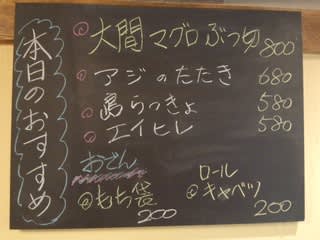 本日のおすすめ
大間マグロぶつ切 800
アジのたたき 680
島らっきょ 580
エイヒレ 580
おでん
もち袋 200
ロール
キャベツ 200